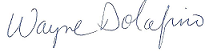 Wayne Dolafino